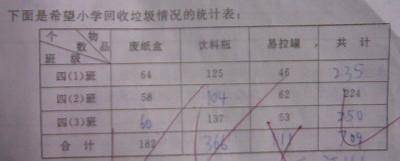 下面是希望小学回收垃圾情况的统计表：
个数 物品 班级 废纸盒 饮料瓶 易拉罐 共计
四(1)班 64 125 46 235
四(2)班 58 104 62 224
四(3)班 60 137 53 250
合计 182 366